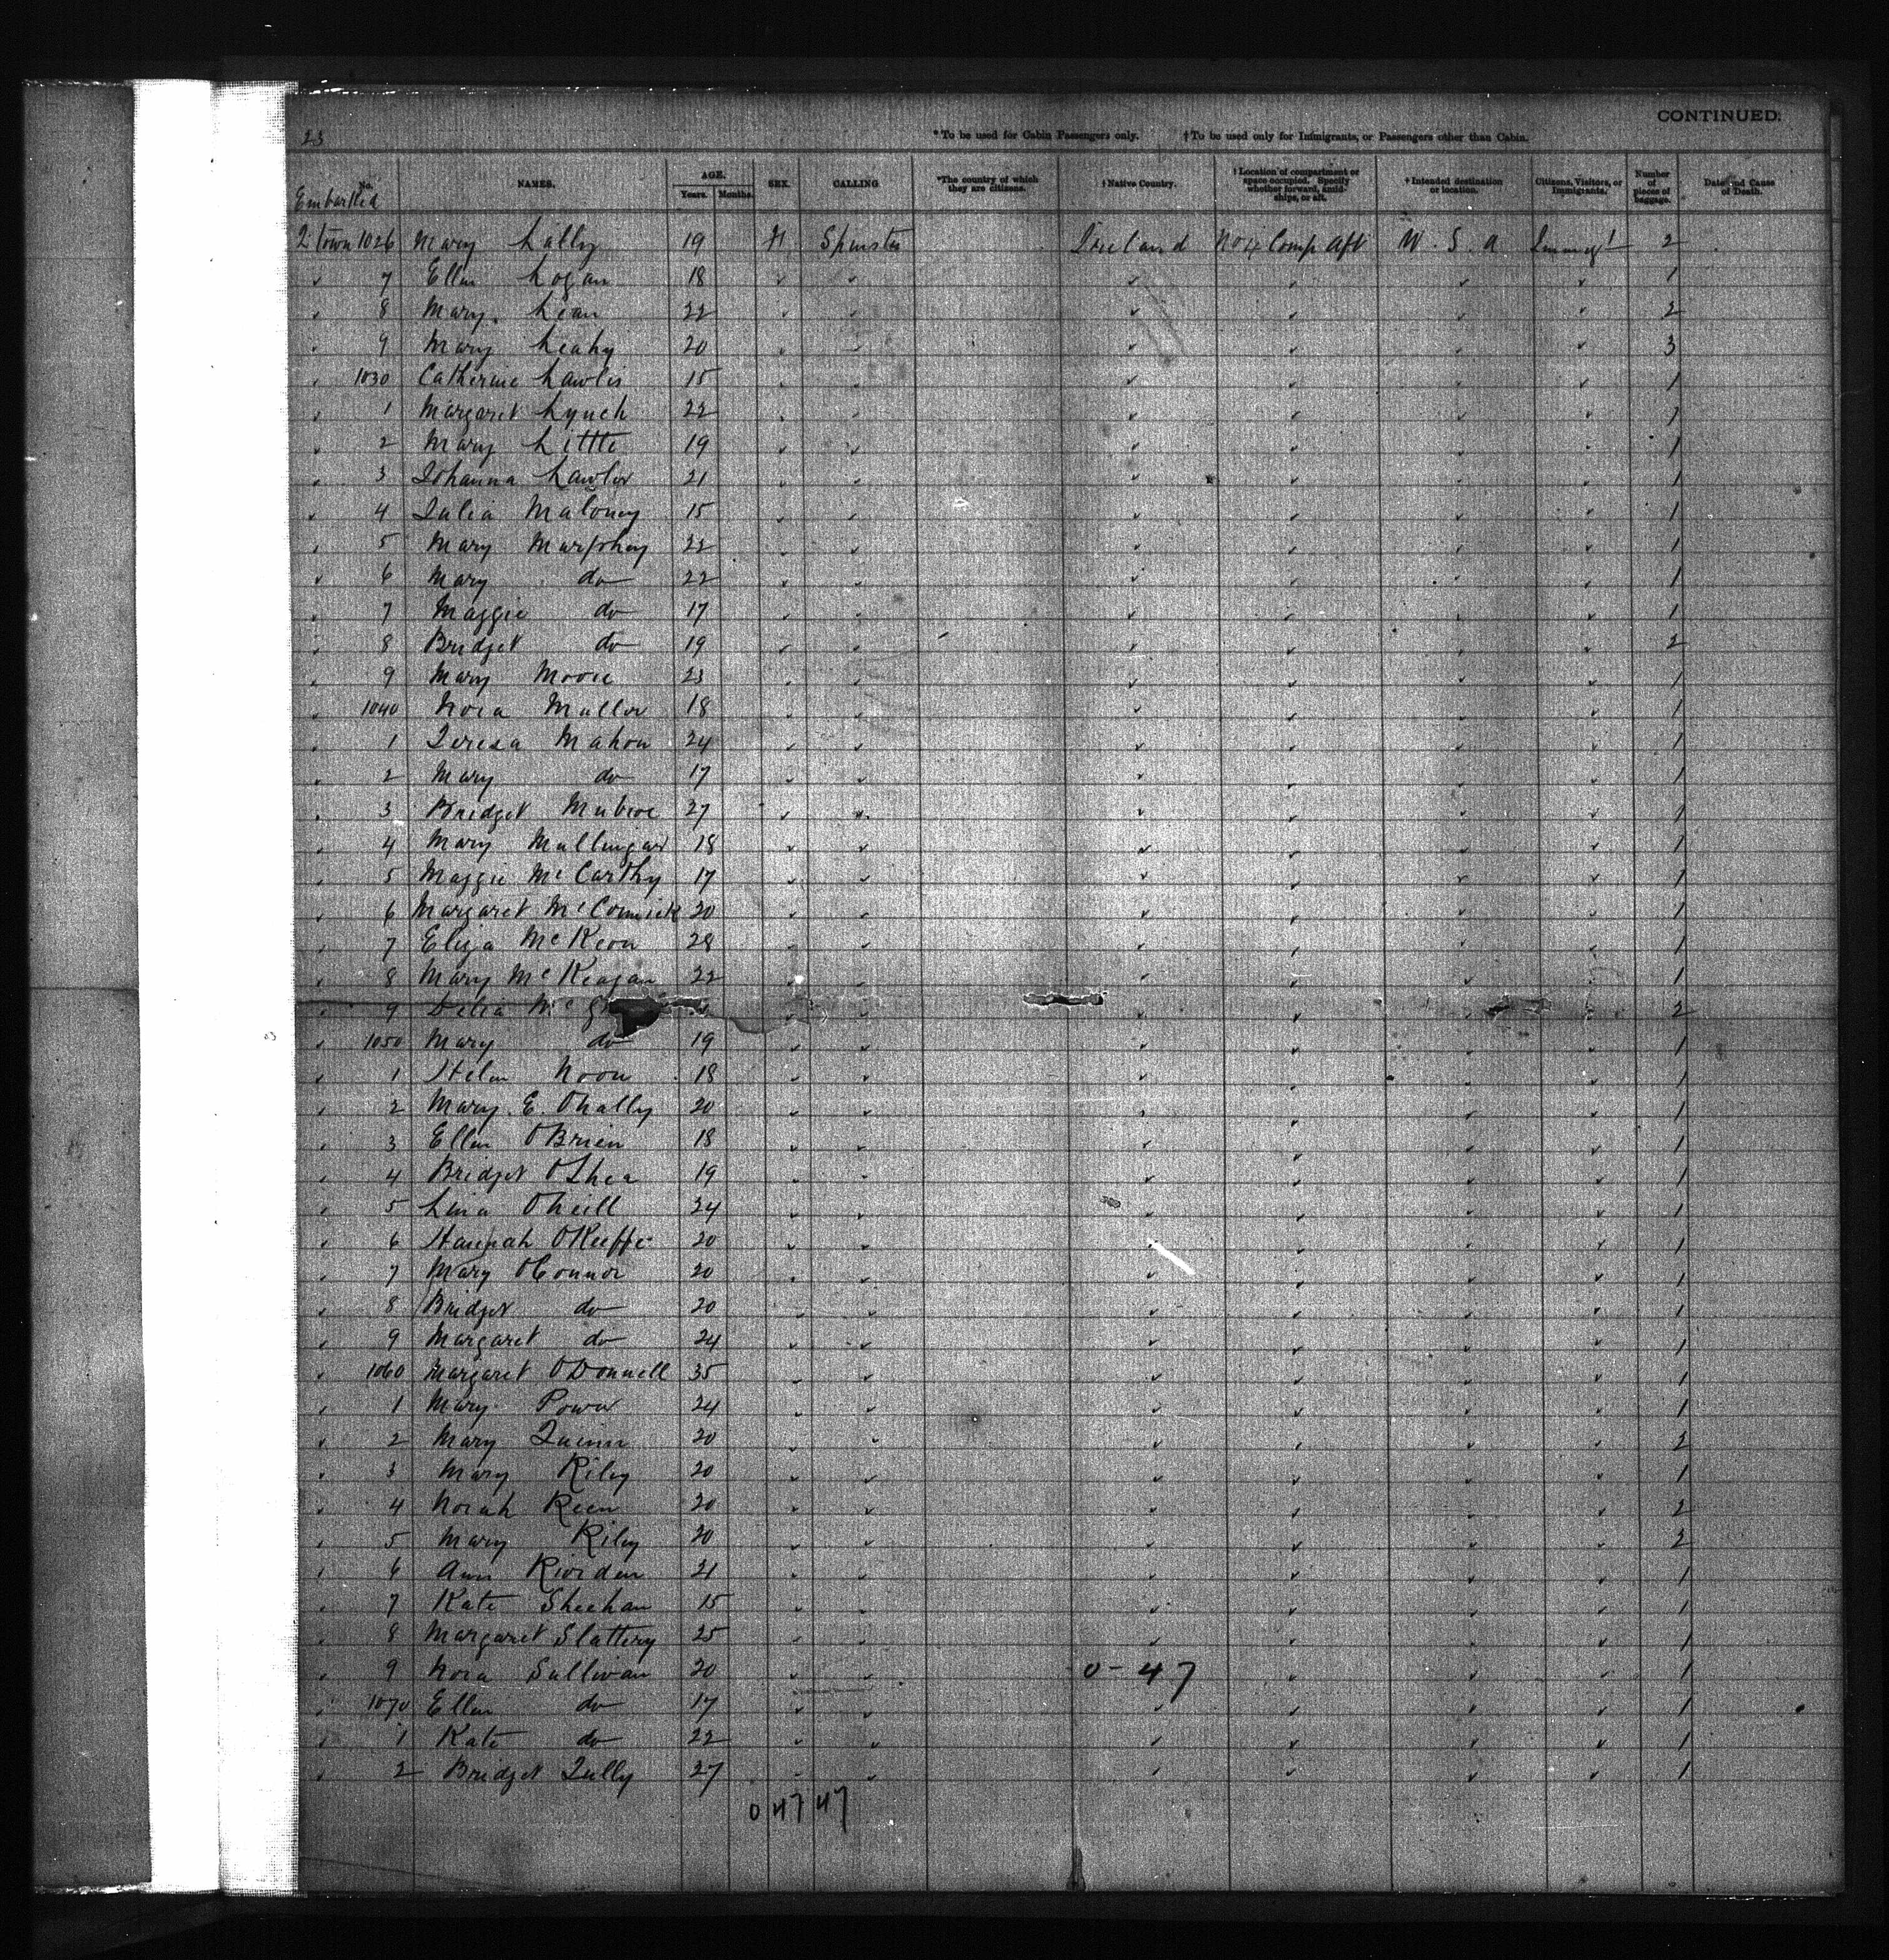 CONTINUED.
23
*To be used for Cabin Passengers only. †To be used only for Immigrants, or Passengers other than Cabin.
Embarked No. NAMES. AGE. Years. Months. SEX. CALLING *The country of which they are citizens. †Native Country. †Location of compartment or space occupied. Specify whether forward, amidships, or aft. †Intended destination or location. Citizens, Visitors, or Immigrants. Number of pieces of baggage. Date and Cause of Death.
Q town 1026 Mary Lally 19 F. Spinster Ireland No 4 Comp Aft U. S. A Immigt 2
✓ 7 Ellen Logan 18 ✓ ✓ ✓ ✓ ✓ ✓ 1
✓ 8 Mary Lean 22 ✓ ✓ ✓ ✓ ✓ ✓ 2
✓ 9 Mary Leahy 20 ✓ ✓ ✓ ✓ ✓ ✓ 3
✓ 1030 Catherine Lawlis 15 ✓ ✓ ✓ ✓ ✓ ✓ 1
✓ 1 Margaret Lynch 22 ✓ ✓ ✓ ✓ ✓ ✓ 1
✓ 2 Mary Little 19 ✓ ✓ ✓ ✓ ✓ ✓ 1
✓ 3 Johanna Lawlor 21 ✓ ✓ ✓ ✓ ✓ ✓ 1
✓ 4 Julia Maloney 15 ✓ ✓ ✓ ✓ ✓ ✓ 1
✓ 5 Mary Murphey 22 ✓ ✓ ✓ ✓ ✓ ✓ 1
✓ 6 Mary do 22 ✓ ✓ ✓ ✓ ✓ ✓ 1
✓ 7 Maggie do 17 ✓ ✓ ✓ ✓ ✓ ✓ 1
✓ 8 Bridget do 19 ✓ ✓ ✓ ✓ ✓ ✓ 2
✓ 9 Mary Moore 23 ✓ ✓ ✓ ✓ ✓ ✓ 1
✓ 1040 Nora Mullor 18 ✓ ✓ ✓ ✓ ✓ ✓ 1
✓ 1 Teresa Mahon 24 ✓ ✓ ✓ ✓ ✓ ✓ 1
✓ 2 Mary do 17 ✓ ✓ ✓ ✓ ✓ ✓ 1
✓ 3 Bridget 27 ✓ ✓ ✓ ✓ ✓ ✓ 1
✓ 4 Mary Mullingar 18 ✓ ✓ ✓ ✓ ✓ ✓ 1
✓ 5 Maggie McCarthy 17 ✓ ✓ ✓ ✓ ✓ ✓ 1
✓ 6 Margaret McCormick 20 ✓ ✓ ✓ ✓ ✓ ✓ 1
✓ 7 Eliza McKeon 28 ✓ ✓ ✓ ✓ ✓ ✓ 1
✓ 8 Mary McKeagan 22 ✓ ✓ ✓ ✓ ✓ ✓ 1
✓ 9 Delia ✓ ✓ ✓ ✓ ✓ ✓ 2
✓ 1050 Mary do 19 ✓ ✓ ✓ ✓ ✓ ✓ 1
✓ 1 Helen Noon 18 ✓ ✓ ✓ ✓ ✓ ✓ 1
✓ 2 Mary E. 20 ✓ ✓ ✓ ✓ ✓ ✓ 1
✓ 3 Ellen OBrien 18 ✓ ✓ ✓ ✓ ✓ ✓ 1
✓ 4 Bridget OShea 19 ✓ ✓ ✓ ✓ ✓ ✓ 1
✓ 5 Lina ONeill 24 ✓ ✓ ✓ ✓ ✓ ✓ 1
✓ 6 Hannah OKeeffe 20 ✓ ✓ ✓ ✓ ✓ ✓ 1
✓ 7 Mary OConnor 20 ✓ ✓ ✓ ✓ ✓ ✓ 1
✓ 8 Bridget do 20 ✓ ✓ ✓ ✓ ✓ ✓ 1
✓ 9 Margaret do 24 ✓ ✓ ✓ ✓ ✓ ✓ 1
✓ 1060 Margaret ODonnell 35 ✓ ✓ ✓ ✓ ✓ ✓ 1
✓ 1 Mary Power 24 ✓ ✓ ✓ ✓ ✓ ✓ 1
✓ 2 Mary Quinn 20 ✓ ✓ ✓ ✓ ✓ ✓ 2
✓ 3 Mary Riley 20 ✓ ✓ ✓ ✓ ✓ ✓ 1
✓ 4 Norah Reen 20 ✓ ✓ ✓ ✓ ✓ ✓ 2
✓ 5 Mary Riley 20 ✓ ✓ ✓ ✓ ✓ ✓ 2
✓ 6 Ann Riordan 21 ✓ ✓ ✓ ✓ ✓ ✓ 1
✓ 7 Kate Sheehan 15 ✓ ✓ ✓ ✓ ✓ ✓ 1
✓ 8 Margaret Slattery 25 ✓ ✓ ✓ ✓ ✓ ✓ 1
✓ 9 Nora Sullivan 20 ✓ ✓ 0-47 ✓ ✓ ✓ 1
✓ 1070 Ellen do 17 ✓ ✓ ✓ ✓ ✓ ✓ 1
✓ 1 Kate do 22 ✓ ✓ ✓ ✓ ✓ ✓ 1
✓ 2 Bridget Tully 27 ✓ ✓ ✓ ✓ ✓ ✓ 1
0 47 47